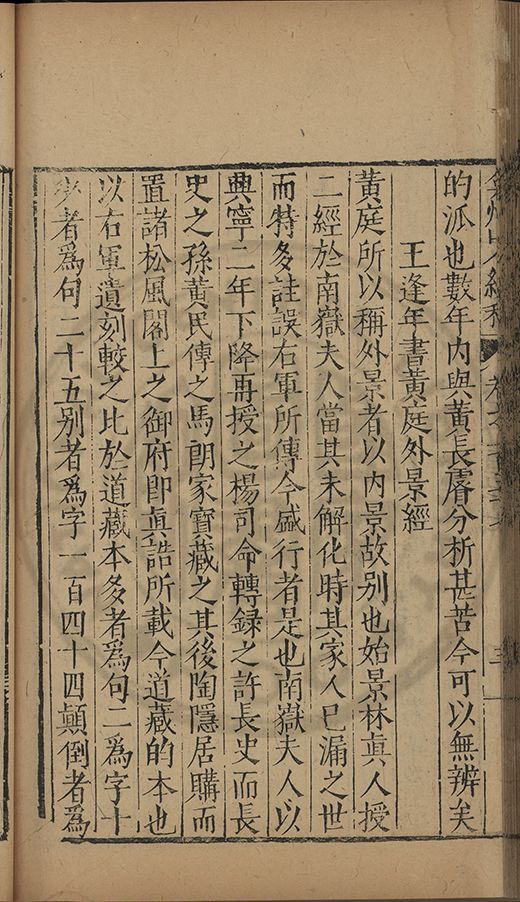 的派也數年内與黄長睿分析甚苦今可以無辨矣
王逢年書黄庭外景經
黄庭所以稱外景者以内景故别也始景林真人授
二經於南嶽夫人當其未解化時其家人已漏之世
而特多註誤右軍所傳今盛行者是也南嶽夫人以
興寧二年下降再授之楊司命轉録之許長史而長
史之孫黄民傳之馬朗家寳藏之其後陶隱居購而
置諸松風閣上之御府即真誥所載今道藏的本也
以右軍遺刻較之比於道藏本多者爲句二爲字十
少者爲句二十五别者爲字一百四十四顛倒者爲